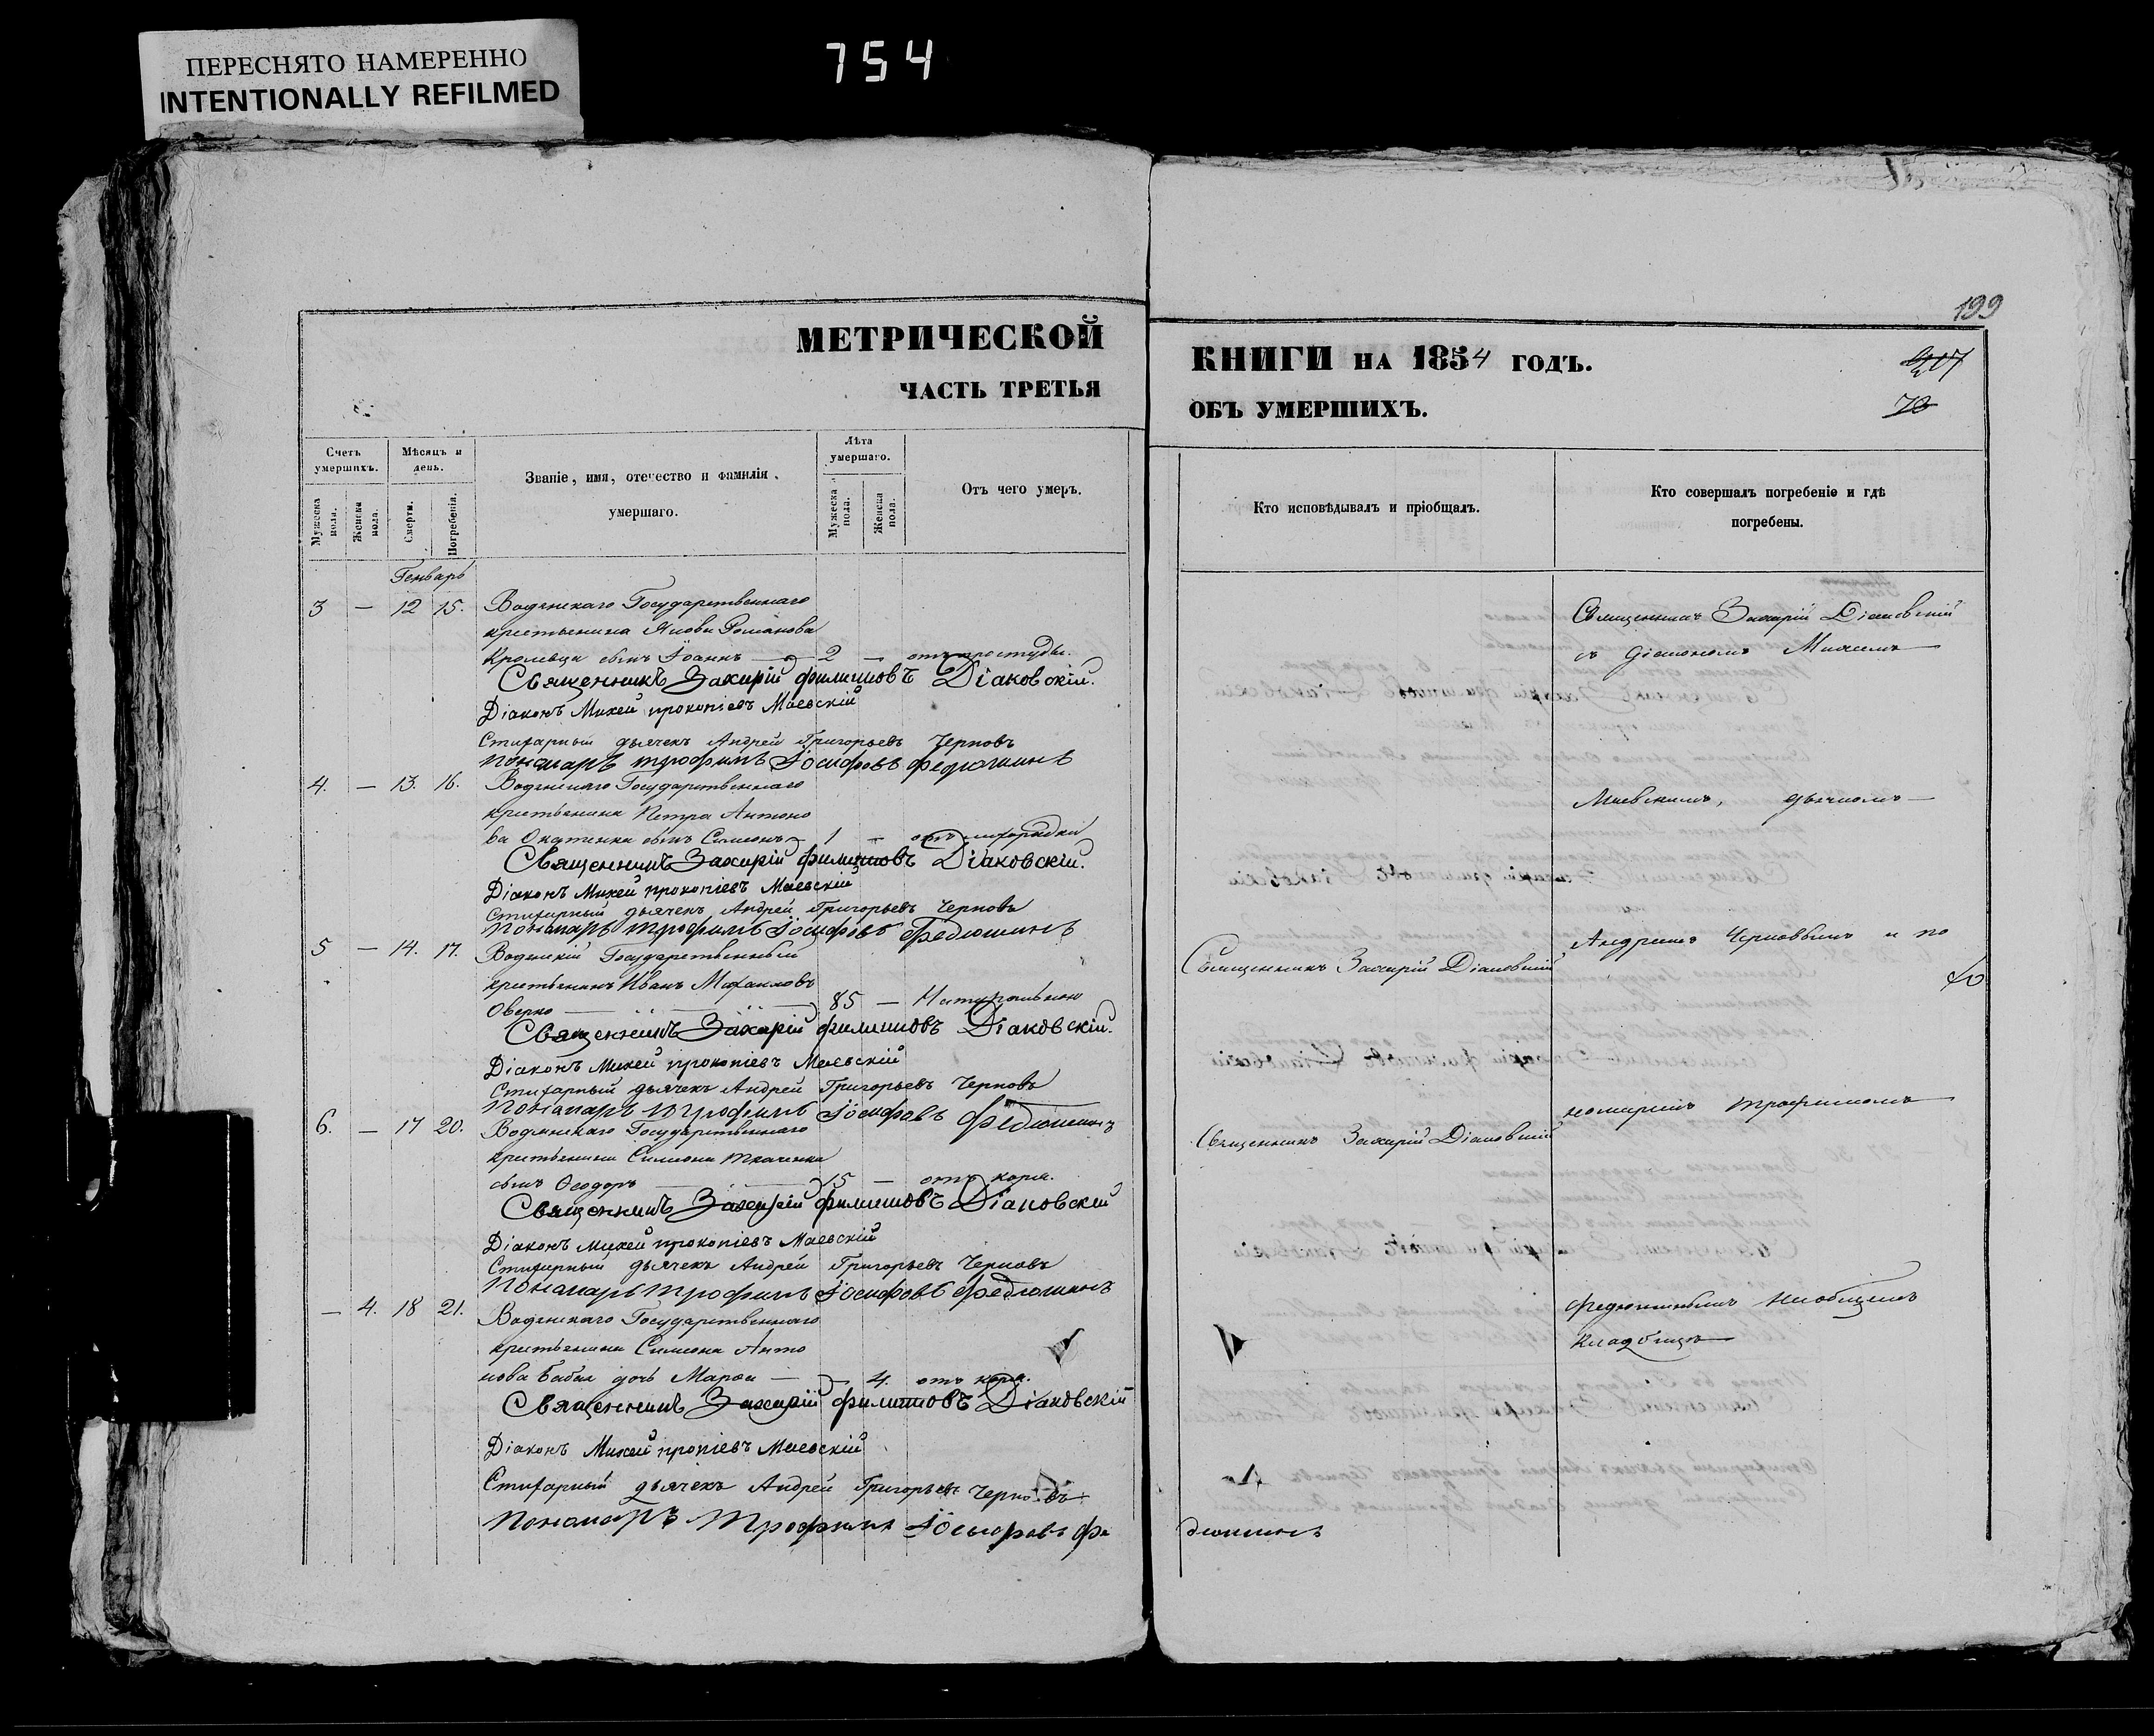 ПЕРЕСНЯТО НАМЕРЕННО
INTENTIONALLY REFILMED
754
199
МЕТРИЧЕСКОЙ
ЧАСТЬ ТРЕТЬЯ
КНИГИ НА 1854 ГОДЪ.
ОБЪ УМЕРШИХЪ.
207
70
Счетъ умершихъ.
Мужеска пола.
Женска пола.
Мѣсяцъ и день.
Смерти.
Погребенія.
Званіе, имя, отечество и фамилія
умершаго.
Лѣта умершаго.
Мужеска пола.
Женска пола.
Отъ чего умеръ.
Кто исповѣдывалъ и пріобщалъ.
Кто совершалъ погребеніе и гдѣ
погребены.
Генварь
3 — 12 15. Водянскаго Государственнаго
крестьянина Якова Романова
Кролевца сынъ Іоаннъ — 2 — отъ простуды.
Священникъ Захарій Филиповъ Діаковскій.
Діаконъ Михей Прокопіевъ Маевскій
Стихарный дьячекъ Андрей Григорьевъ Черновъ
Пономарь Трофимъ Іосифовъ Федюшинъ
4. — 13. 16. Водянскаго Государственнаго
крестьянина Петра Антоно
ва сынъ Симеонъ 1 — отъ лихорадки
Священникъ Захарій Филиповъ Діаковскій.
Діаконъ Михей Прокопіевъ Маевскій
Стихарный дьячекъ Андрей Григорьевъ Черновъ
Пономарь Трофимъ Іосифовъ Федюшинъ
5 — 14. 17. Водянскій Государственный
крестьянинъ Иванъ Михаиловъ
Оверко — 85 — Натурально
Священникъ Захарій Филиповъ Діаковскій.
Діаконъ Михей Прокопіевъ Маевскій
Стихарный дьячекъ Андрей Григорьевъ Черновъ
Пономарь Трофимъ Іосифовъ Федюшинъ
6. — 17 20. Водянскаго Государственнаго
крестьянина Симеона Ткаченка
сынъ Ѳеодоръ — 15 — отъ кори.
Священникъ Захарій Филиповъ Діаковскій
Діаконъ Михей Прокопіевъ Маевскій
Стихарный дьячекъ Андрей Григорьевъ Черновъ
Пономарь Трофимъ Іосифовъ Федюшинъ
— 4. 18 21. Водянскаго Государственнаго
крестьянина Симеона Анто
нова Бабака дочь Марѳа — — 4. отъ кори.
Священникъ Захарій Филиповъ Діаковскій
Діаконъ Михей Пропіевъ Маевскій
Стихарный дьячекъ Андрей Григорьевъ Черновъ
Пономарь Трофимъ Іосифовъ Фе
дюшинъ
Священникъ Захарій Діаковскій
Священникъ Захарій Діаковскій
Священникъ Захарій Діаковскій
съ Діакономъ Михеемъ
Маевскимъ, дьячкомъ
Андреемъ Черновымъ и по
номаремъ Трофимомъ
Федюшинымъ на общемъ
кладбищѣ